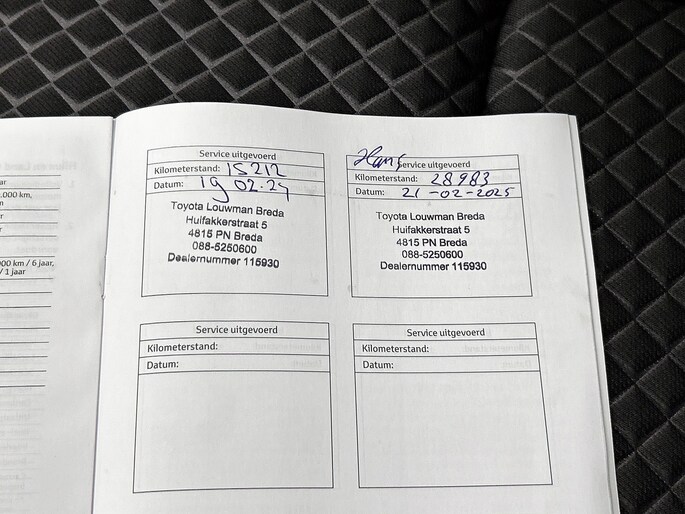 ar
.000 km,
ar
ar
00 km / 6 jaar,
/ 1 jaar
Service uitgevoerd
Kilometerstand: 15212
Datum: 19 02-24
Toyota Louwman Breda
Huifakkerstraat 5
4815 PN Breda
088-5250600
Dealernummer 115930
Hans
Service uitgevoerd
Kilometerstand: 28983
Datum: 21-02-2025
Toyota Louwman Breda
Huifakkerstraat 5
4815 PN Breda
088-5250600
Dealernummer 115930
Service uitgevoerd
Kilometerstand:
Datum:
Service uitgevoerd
Kilometerstand:
Datum: